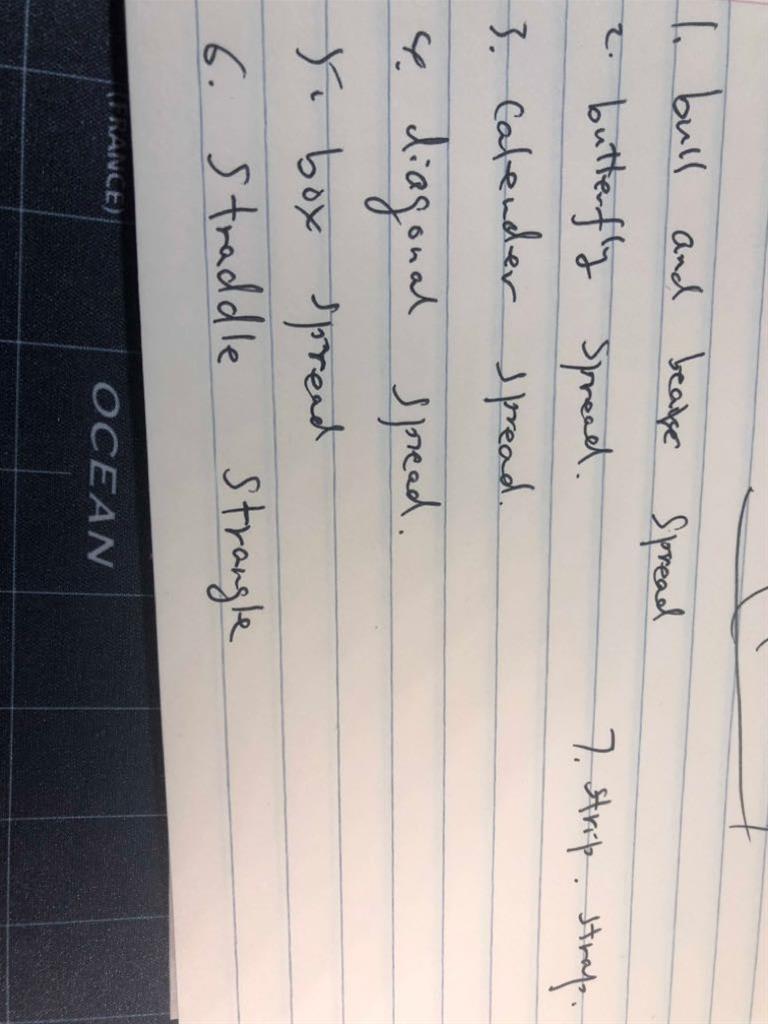 1. bull and bear spread
2. butterfly spread.
3. Calender spread.
4. diagonal spread.
5. box spread
6. Straddle Strangle
7. strip. strap.
(FRANCE)
OCEAN